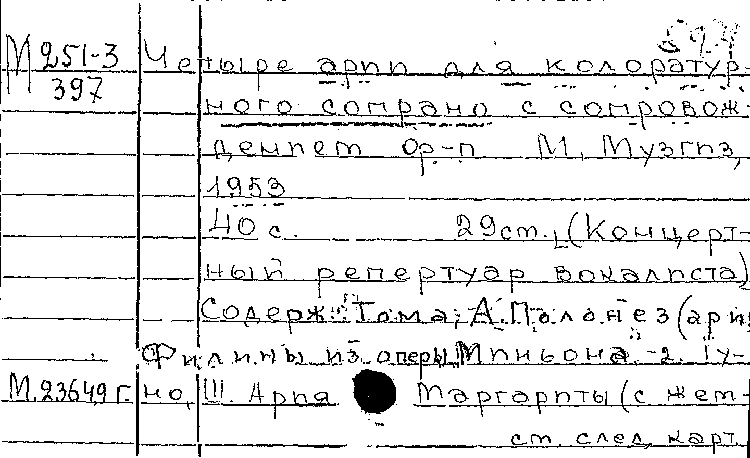 М 251-3
397
Четыре арии для колоратур-
ного сопрано с сопровож-
дением ор-п М, Музгиз,
1953
40 с. 29 ст. (Концерт-
ный репертуар вокалиста)
Содерж: Тома, А. Полонез (ари
Филины из оперы Миньона. -2. Гу-
М. 23649 г. но, Ш. Ария Маргариты (с жем-
ст. след. карт.